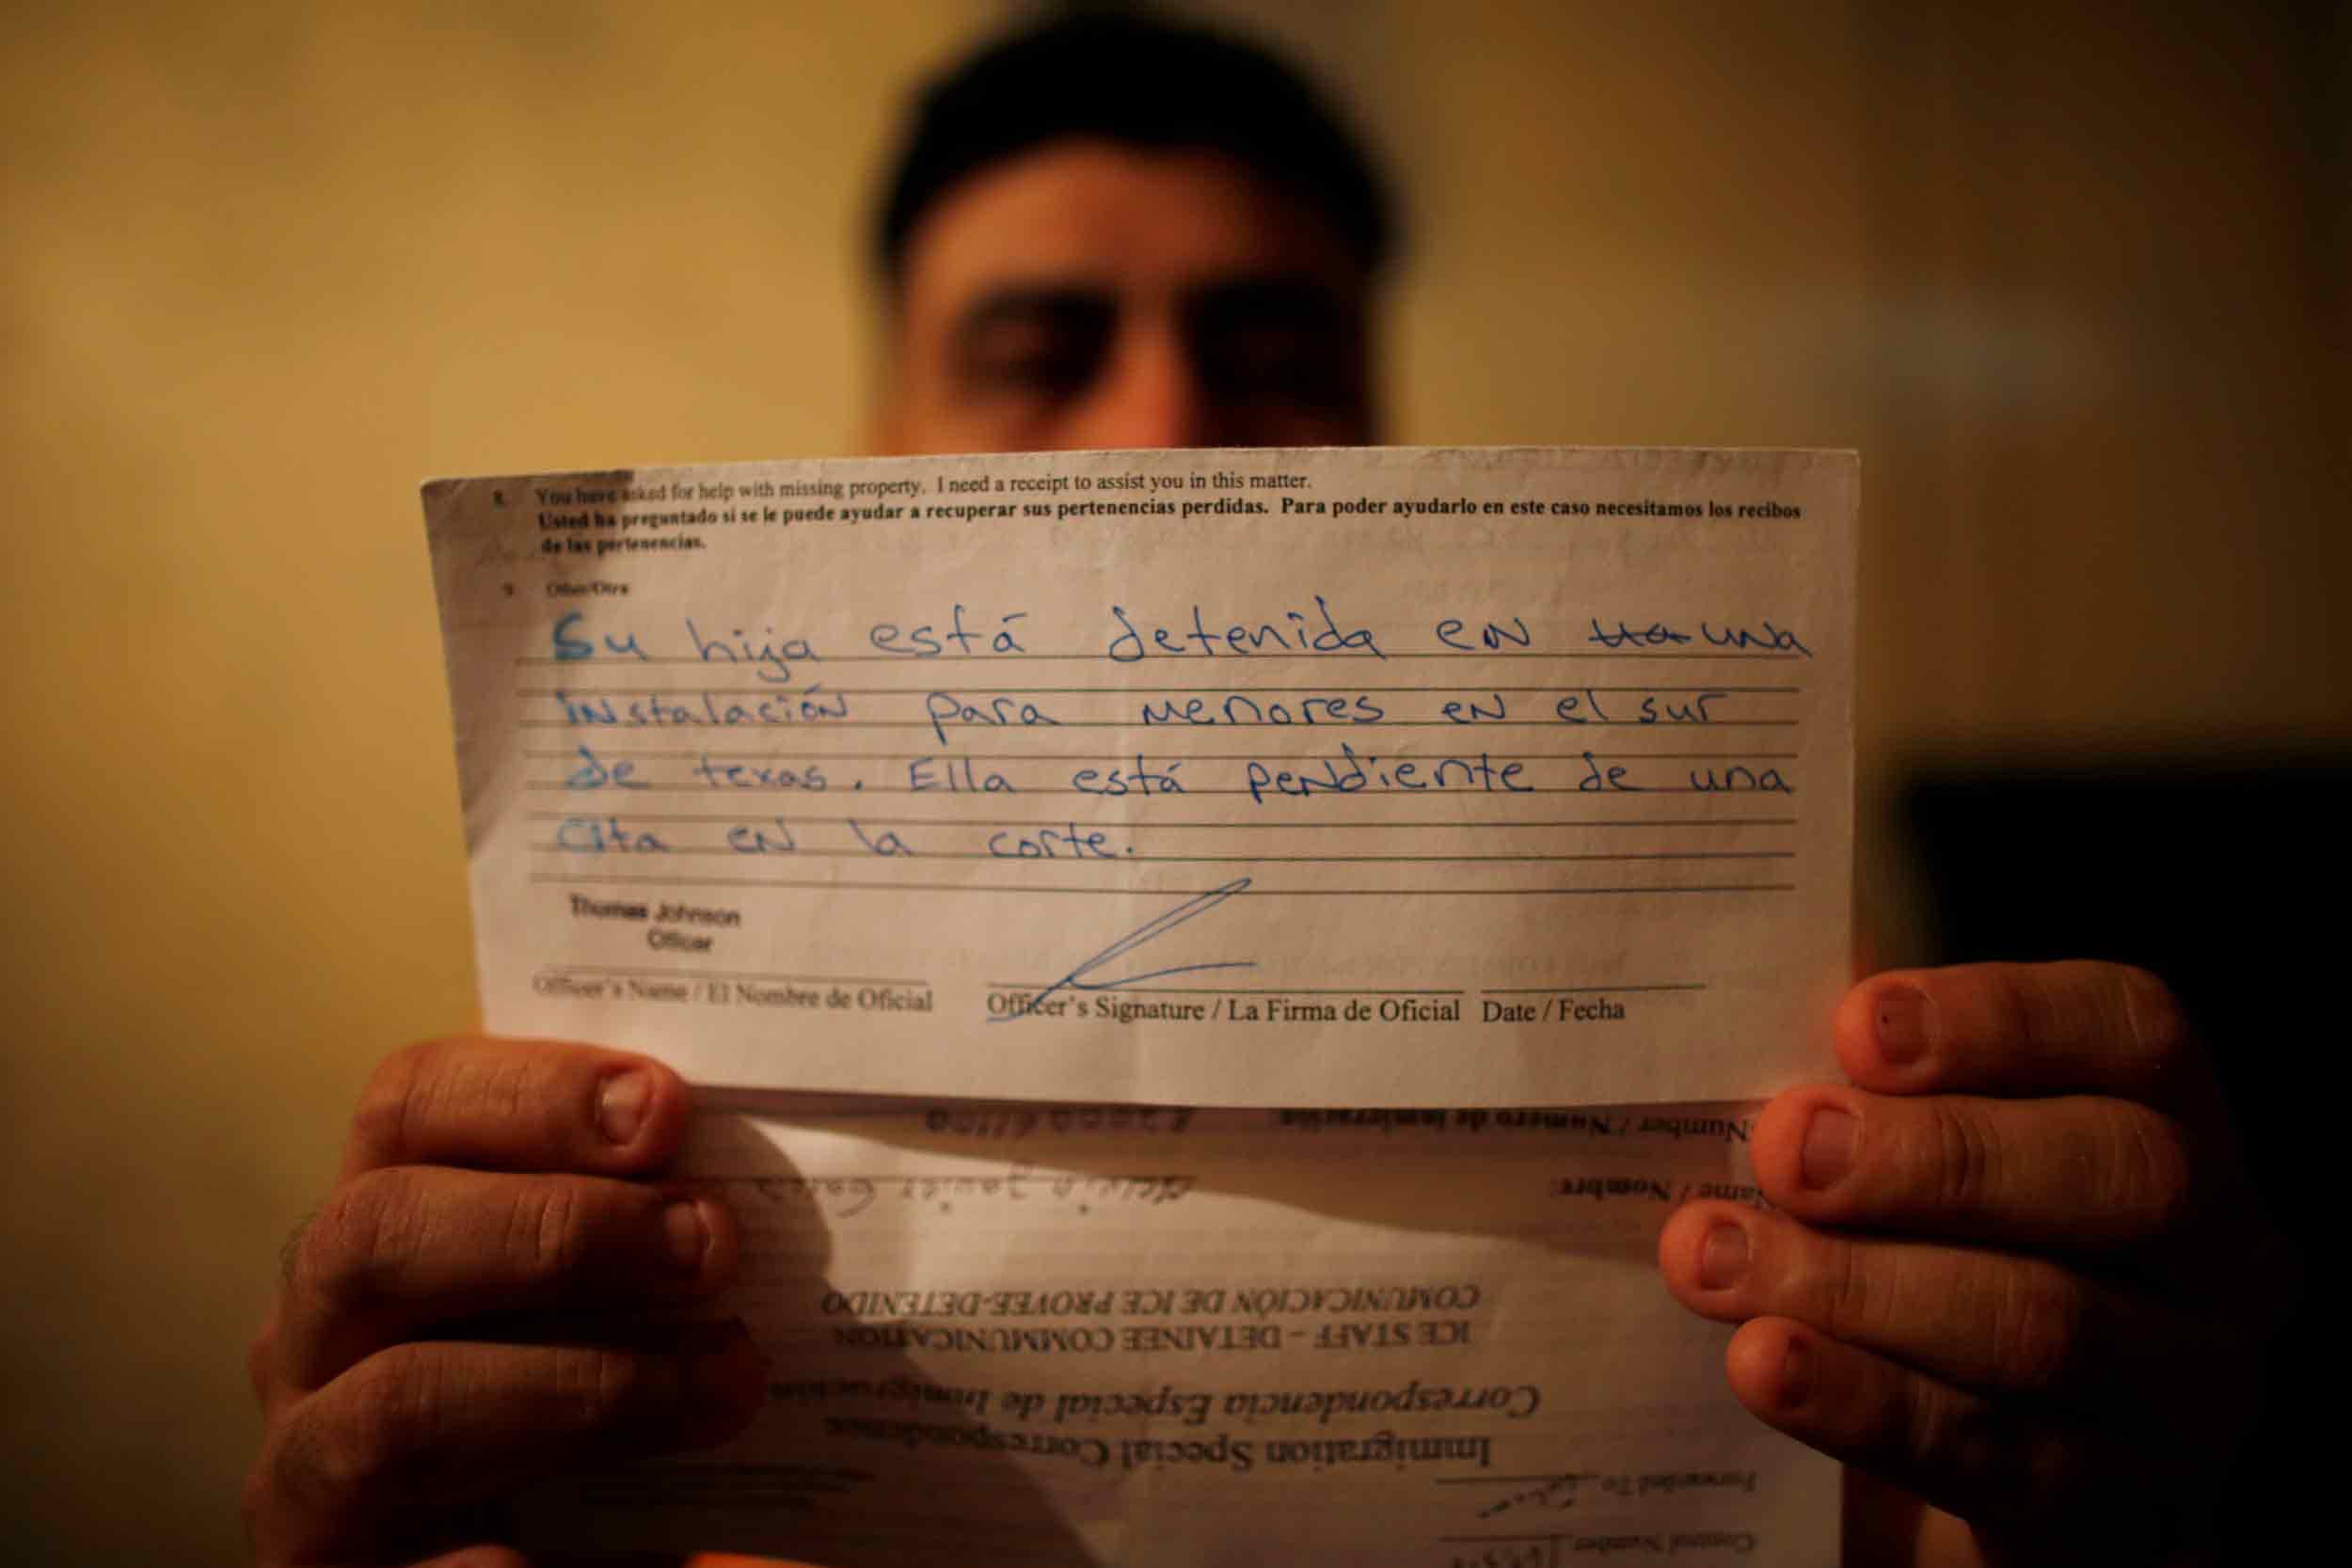 8. You have asked for help with missing property. I need a receipt to assist you in this matter.
Usted ha preguntado si se le puede ayudar a recuperar sus pertenencias perdidas. Para poder ayudarlo en este caso necesitamos los recibos
de las pertenencias.
9 Other/Otra
Su hija está detenida en una
instalación para menores en el sur
de texas. Ella está pendiente de una
cita en la corte.
Thomas Johnson
Officer
Officer's Name / El Nombre de Oficial Officer's Signature / La Firma de Oficial Date / Fecha
Number / Numero de Inmigración:
Name / Nombre: Javier
COMUNICACIÓN DE ICE PROVEE-DETENIDO
ICE STAFF – DETAINEE COMMUNICATION
Correspondencia Especial de Inmigracion
Immigration Special Correspondence
Forwarded To
Control Number